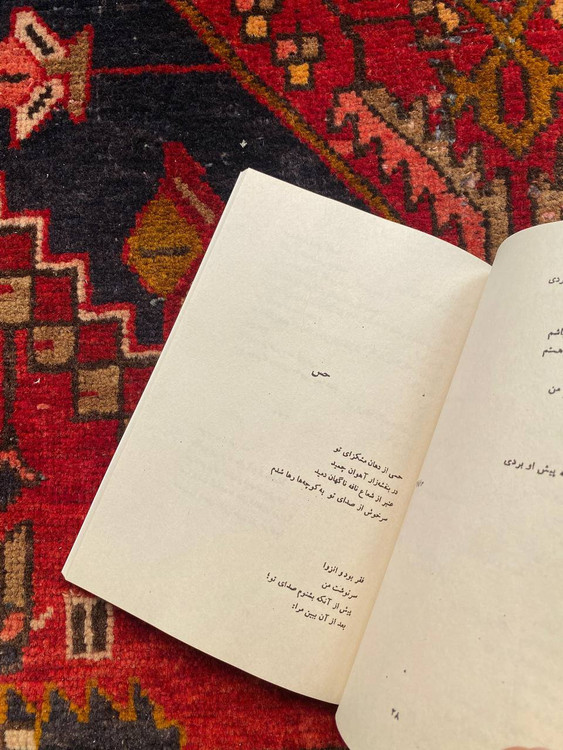 هستم
من
پیش او بردی
۴۸
حس
حسی از دهان مشکزای تو
در بنفشه‌زار آهوان چمید
عنبر از شعاع نافه ناگهان دمید
سرخوش از صدای تو به کوچه‌ها رها شدم
فقر بود و انزوا
سرنوشت من
پیش از آنکه بشنوم صدای تو!
بعد از آن ببین مرا: